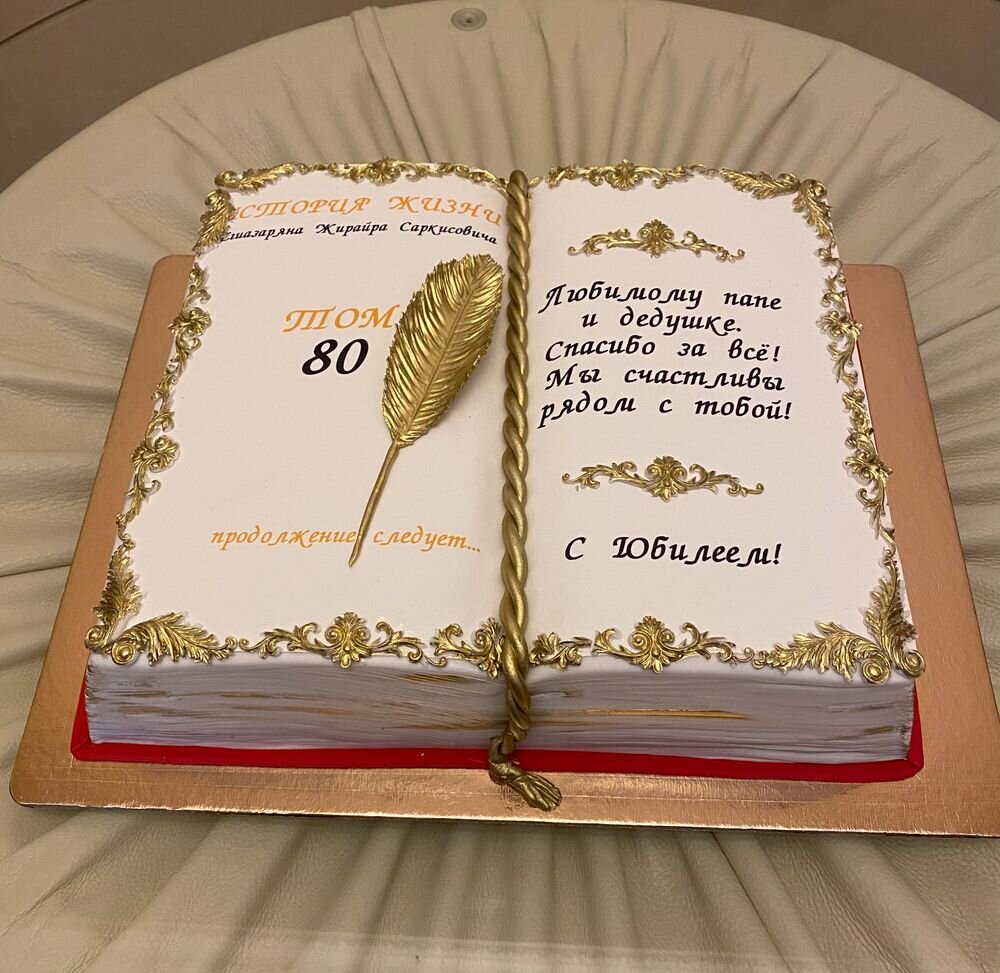 ИСТОРИЯ ЖИЗНИ
Жирайра Саркисовича
ТОМ
80
продолжение следует...
Любимому папе
и дедушке.
Спасибо за всё!
Мы счастливы
рядом с тобой!
С Юбилеем!